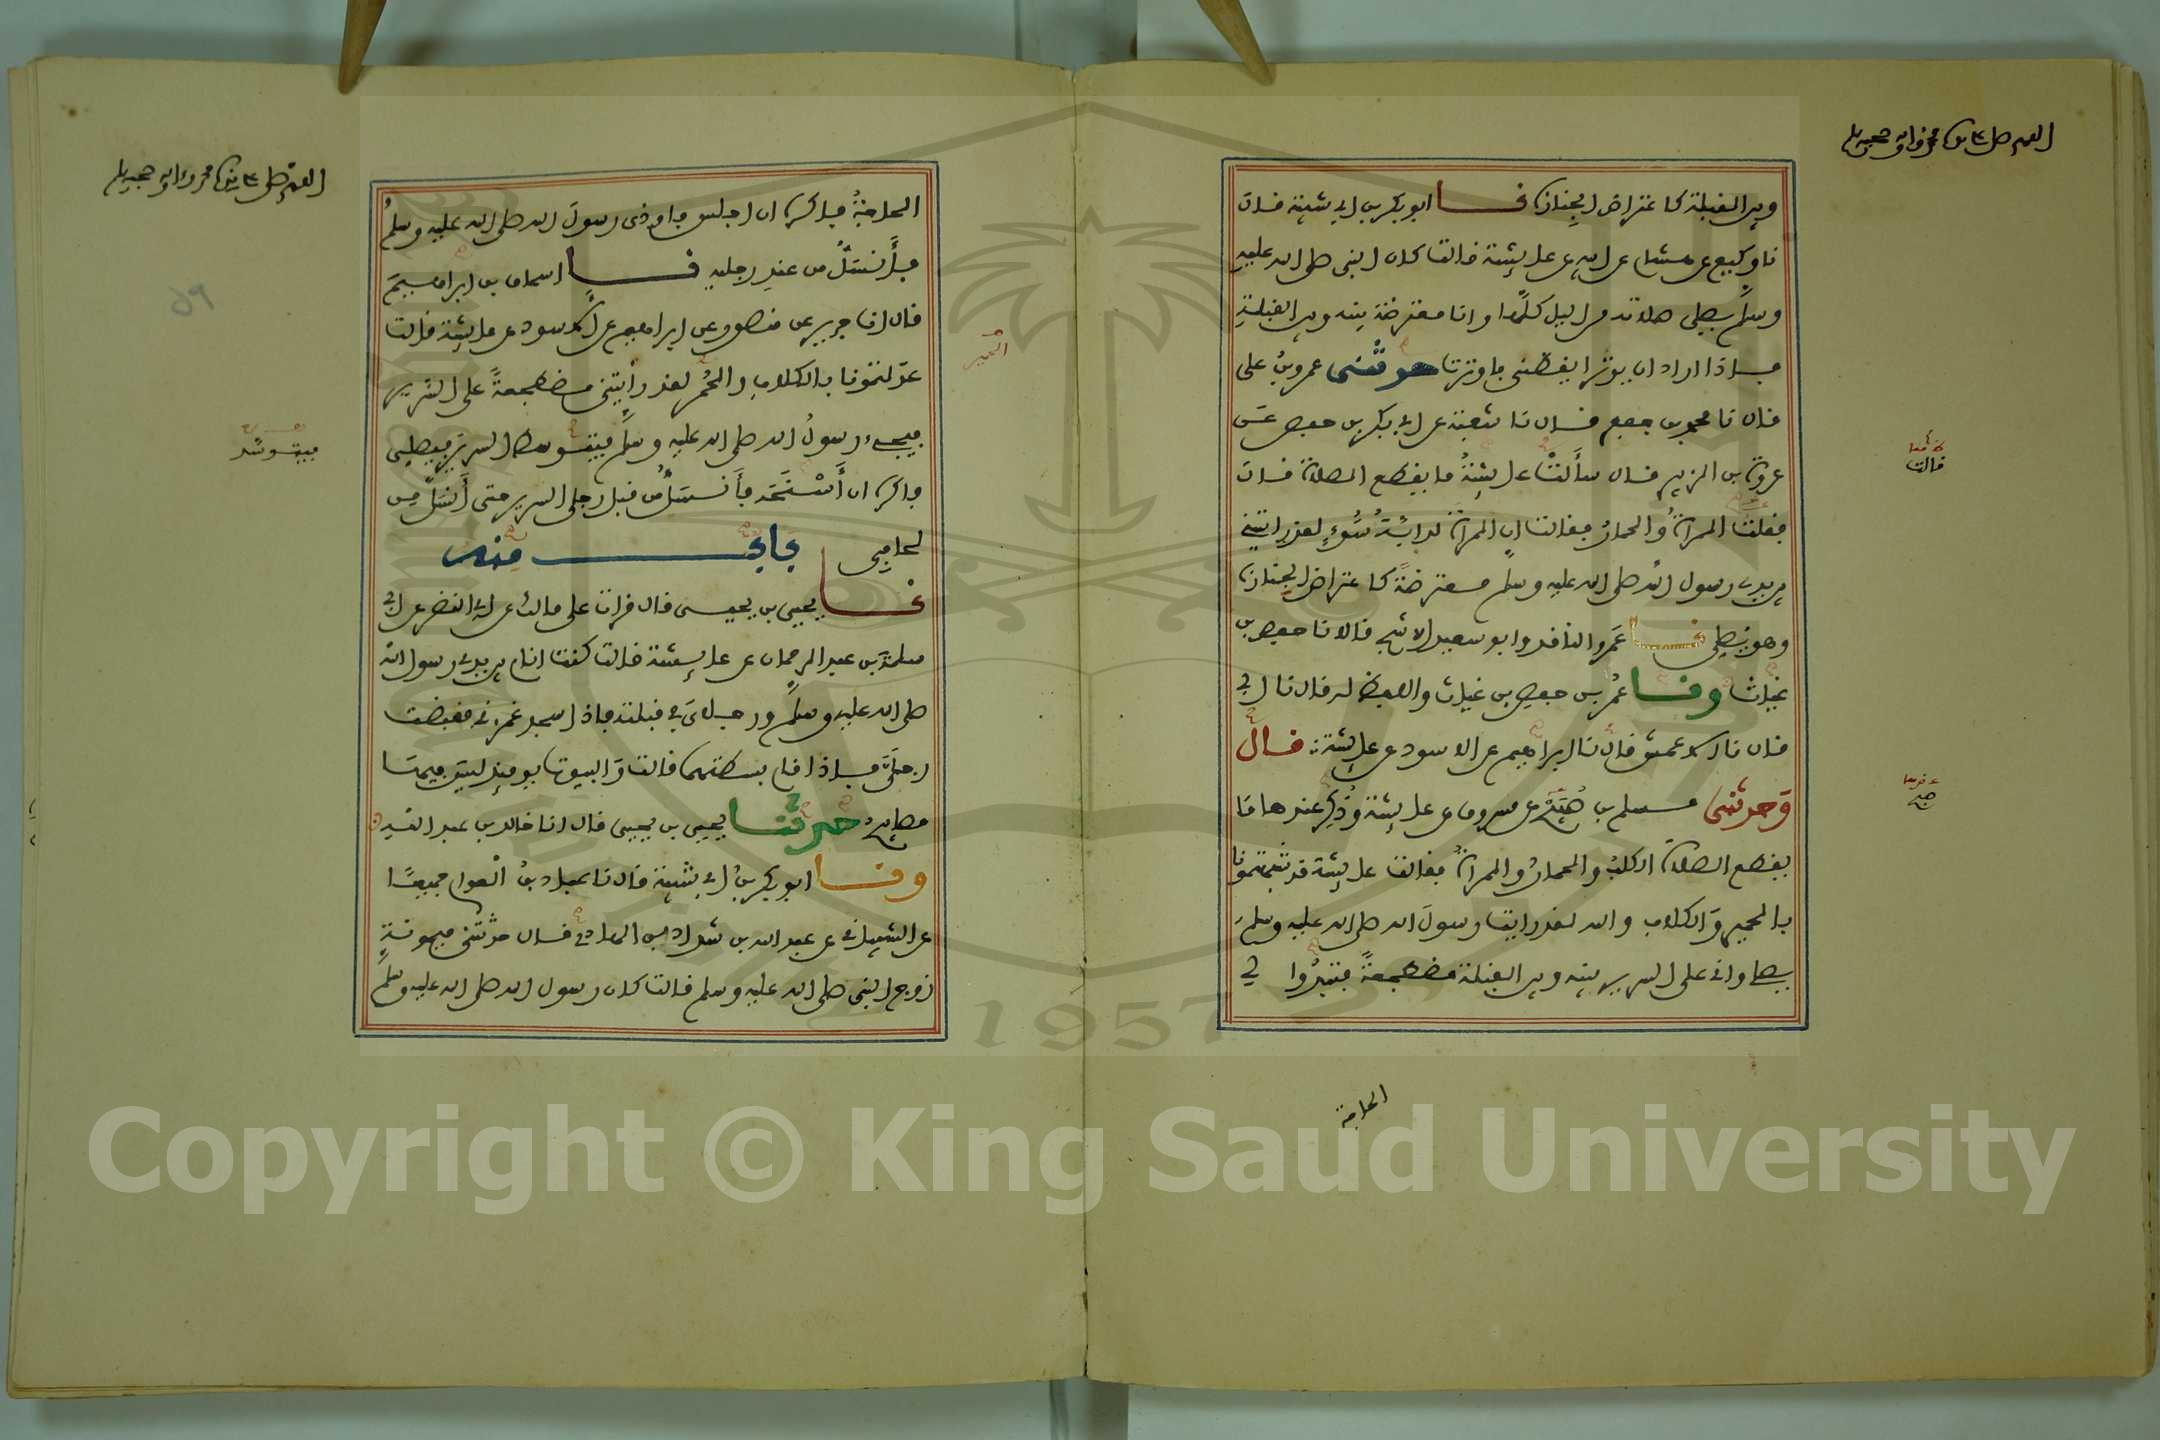 اللهم صل على سيدنا محمد وآله وصحبه وسلم
وبين القبلة كاعتراض الجنازة نا ابو بكر بن ابي شيبة قال
نا وكيع عن هشام عن ابيه عن عايشة قالت كان النبي صلى الله عليه
وسلم يصلي صلاته من الليل كلها وانا معترضة بينه وبين القبلة
فاذا اراد ان يوتر ايقظني فاوترت حدثني عمرو بن علي
قال نا محمد بن جعفر قال نا شعبة عن ابي بكر بن حفص عن
عروة بن الزبير قال سألت عايشة ما يقطع الصلاة قال
فقلت المرأة والحمار فقالت ان المرأة لدابة سوء لقد رايتني
بين يدي رسول الله صلى الله عليه وسلم معترضة كاعتراض الجنازة
وهو يصلي نا عمرو الناقد وابو سعيد الاشج قالا نا حفص بن
غياث ونا عمر بن حفص بن غياث واللفظ له قال نا ابي
قال نا الاعمش قال نا ابراهيم عن الاسود عن عايشة قال
وحدثني مسلم بن صبيح عن مسروق عن عايشة وذكر عندها ما
يقطع الصلاة الكلب والحمار والمرأة فقالت عايشة قد شبهتمونا
بالحمير والكلاب والله لقد رايت رسول الله صلى الله عليه وسلم
يصلي واني على السرير بينه وبين القبلة مضطجعة فتبدوا لي
قالت
الحاجة
اللهم صل على سيدنا محمد وآله وصحبه وسلم
الحاجة فاكره ان اجلس فاوذي رسول الله صلى الله عليه وسلم
فأنسل من عند رجليه نا اسحاق بن ابراهيم
قال انا جرير عن منصور عن ابراهيم عن الاسود عن عايشة قالت
عدلتمونا بالكلاب والحمر لقد رأيتني مضطجعة على السرير
فيجيء رسول الله صلى الله عليه وسلم فيتوسط السرير فيصلي
فاكره ان أسنحه فأنسل من قبل رجلي السرير حتى أنسل من
لحافي باب منه
نا يحيى بن يحيى قال قرات على مالك عن ابي النضر عن ابي
سلمة بن عبد الرحمان عن عايشة قالت كنت انام بين يدي رسول الله
صلى الله عليه وسلم ورجلاي في قبلته فاذا سجد غمزني فقبضت
رجلي فاذا قام بسطتهما قالت والبيوت يومئذ ليس فيها
مصابيح حدثنا يحيى بن يحيى قال انا خالد بن عبد الله
ونا ابو بكر بن ابي شيبة قال نا عباد بن العوام جميعا
عن الشيباني عن عبد الله بن شداد بن الهاد قال حدثتني ميمونة
زوج النبي صلى الله عليه وسلم قالت كان رسول الله صلى الله عليه وسلم
الحمير
٥٩
1957
Copyright © King Saud University